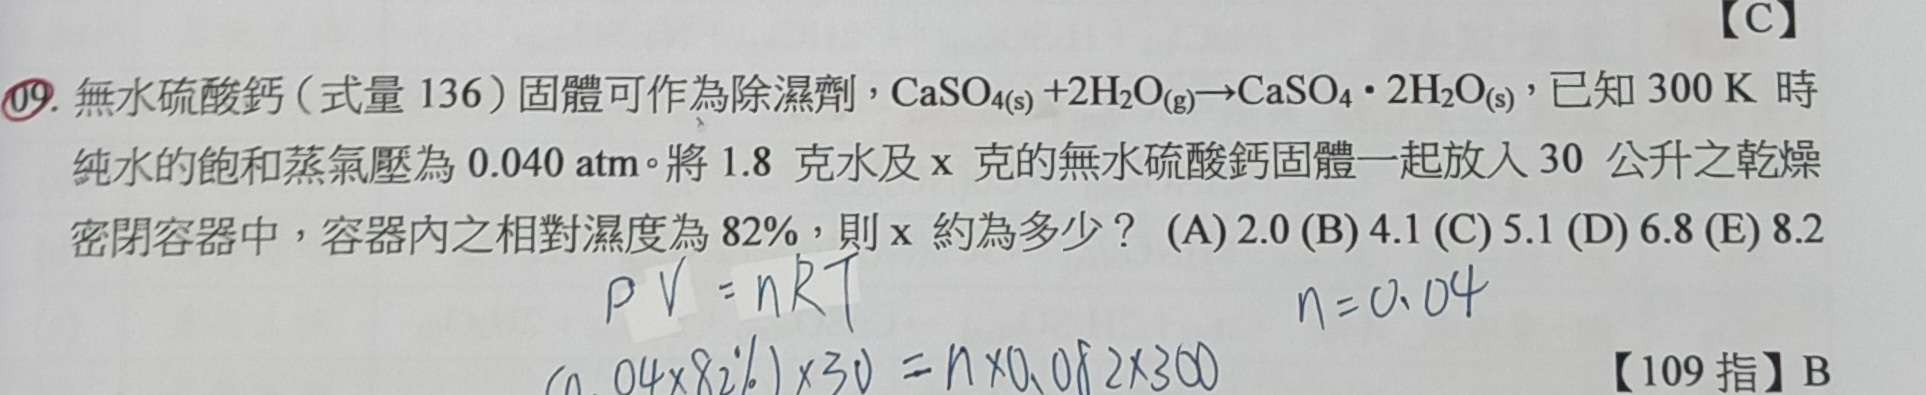 【C】
09. 無水硫酸鈣（式量 136）固體可作為除濕劑，CaSO₄₍ₛ₎ +2H₂O₍g₎→CaSO₄・2H₂O₍ₛ₎，已知 300 K 時
純水的飽和蒸氣壓為 0.040 atm。將 1.8 克水及 x 克的無水硫酸鈣固體一起放入 30 公升之乾燥
密閉容器中，容器內之相對濕度為 82%，則 x 約為多少？ (A) 2.0 (B) 4.1 (C) 5.1 (D) 6.8 (E) 8.2
PV = nRT n = 0.04
(0.04×82%)×30 = n×0.082×300
【109 指】B